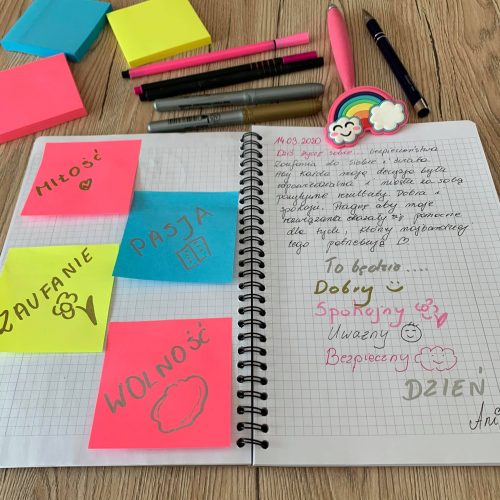 MIŁOŚĆ
PASJA
ZAUFANIE
WOLNOŚĆ
14.03.2020
Dziś życzę sobie bezpieczeństwa
zaufania do siebie i świata.
Aby każda moja decyzja była
odpowiedzialna i niosła za sobą
pozytywne rezultaty. Dobra i
spokoju. Pragnę aby moje
rozwiązania okazały się pomocne
dla tych, którzy najbardziej
tego potrzebują
To będzie ....
Dobry
Spokojny
Uważny
Bezpieczny
DZIEŃ